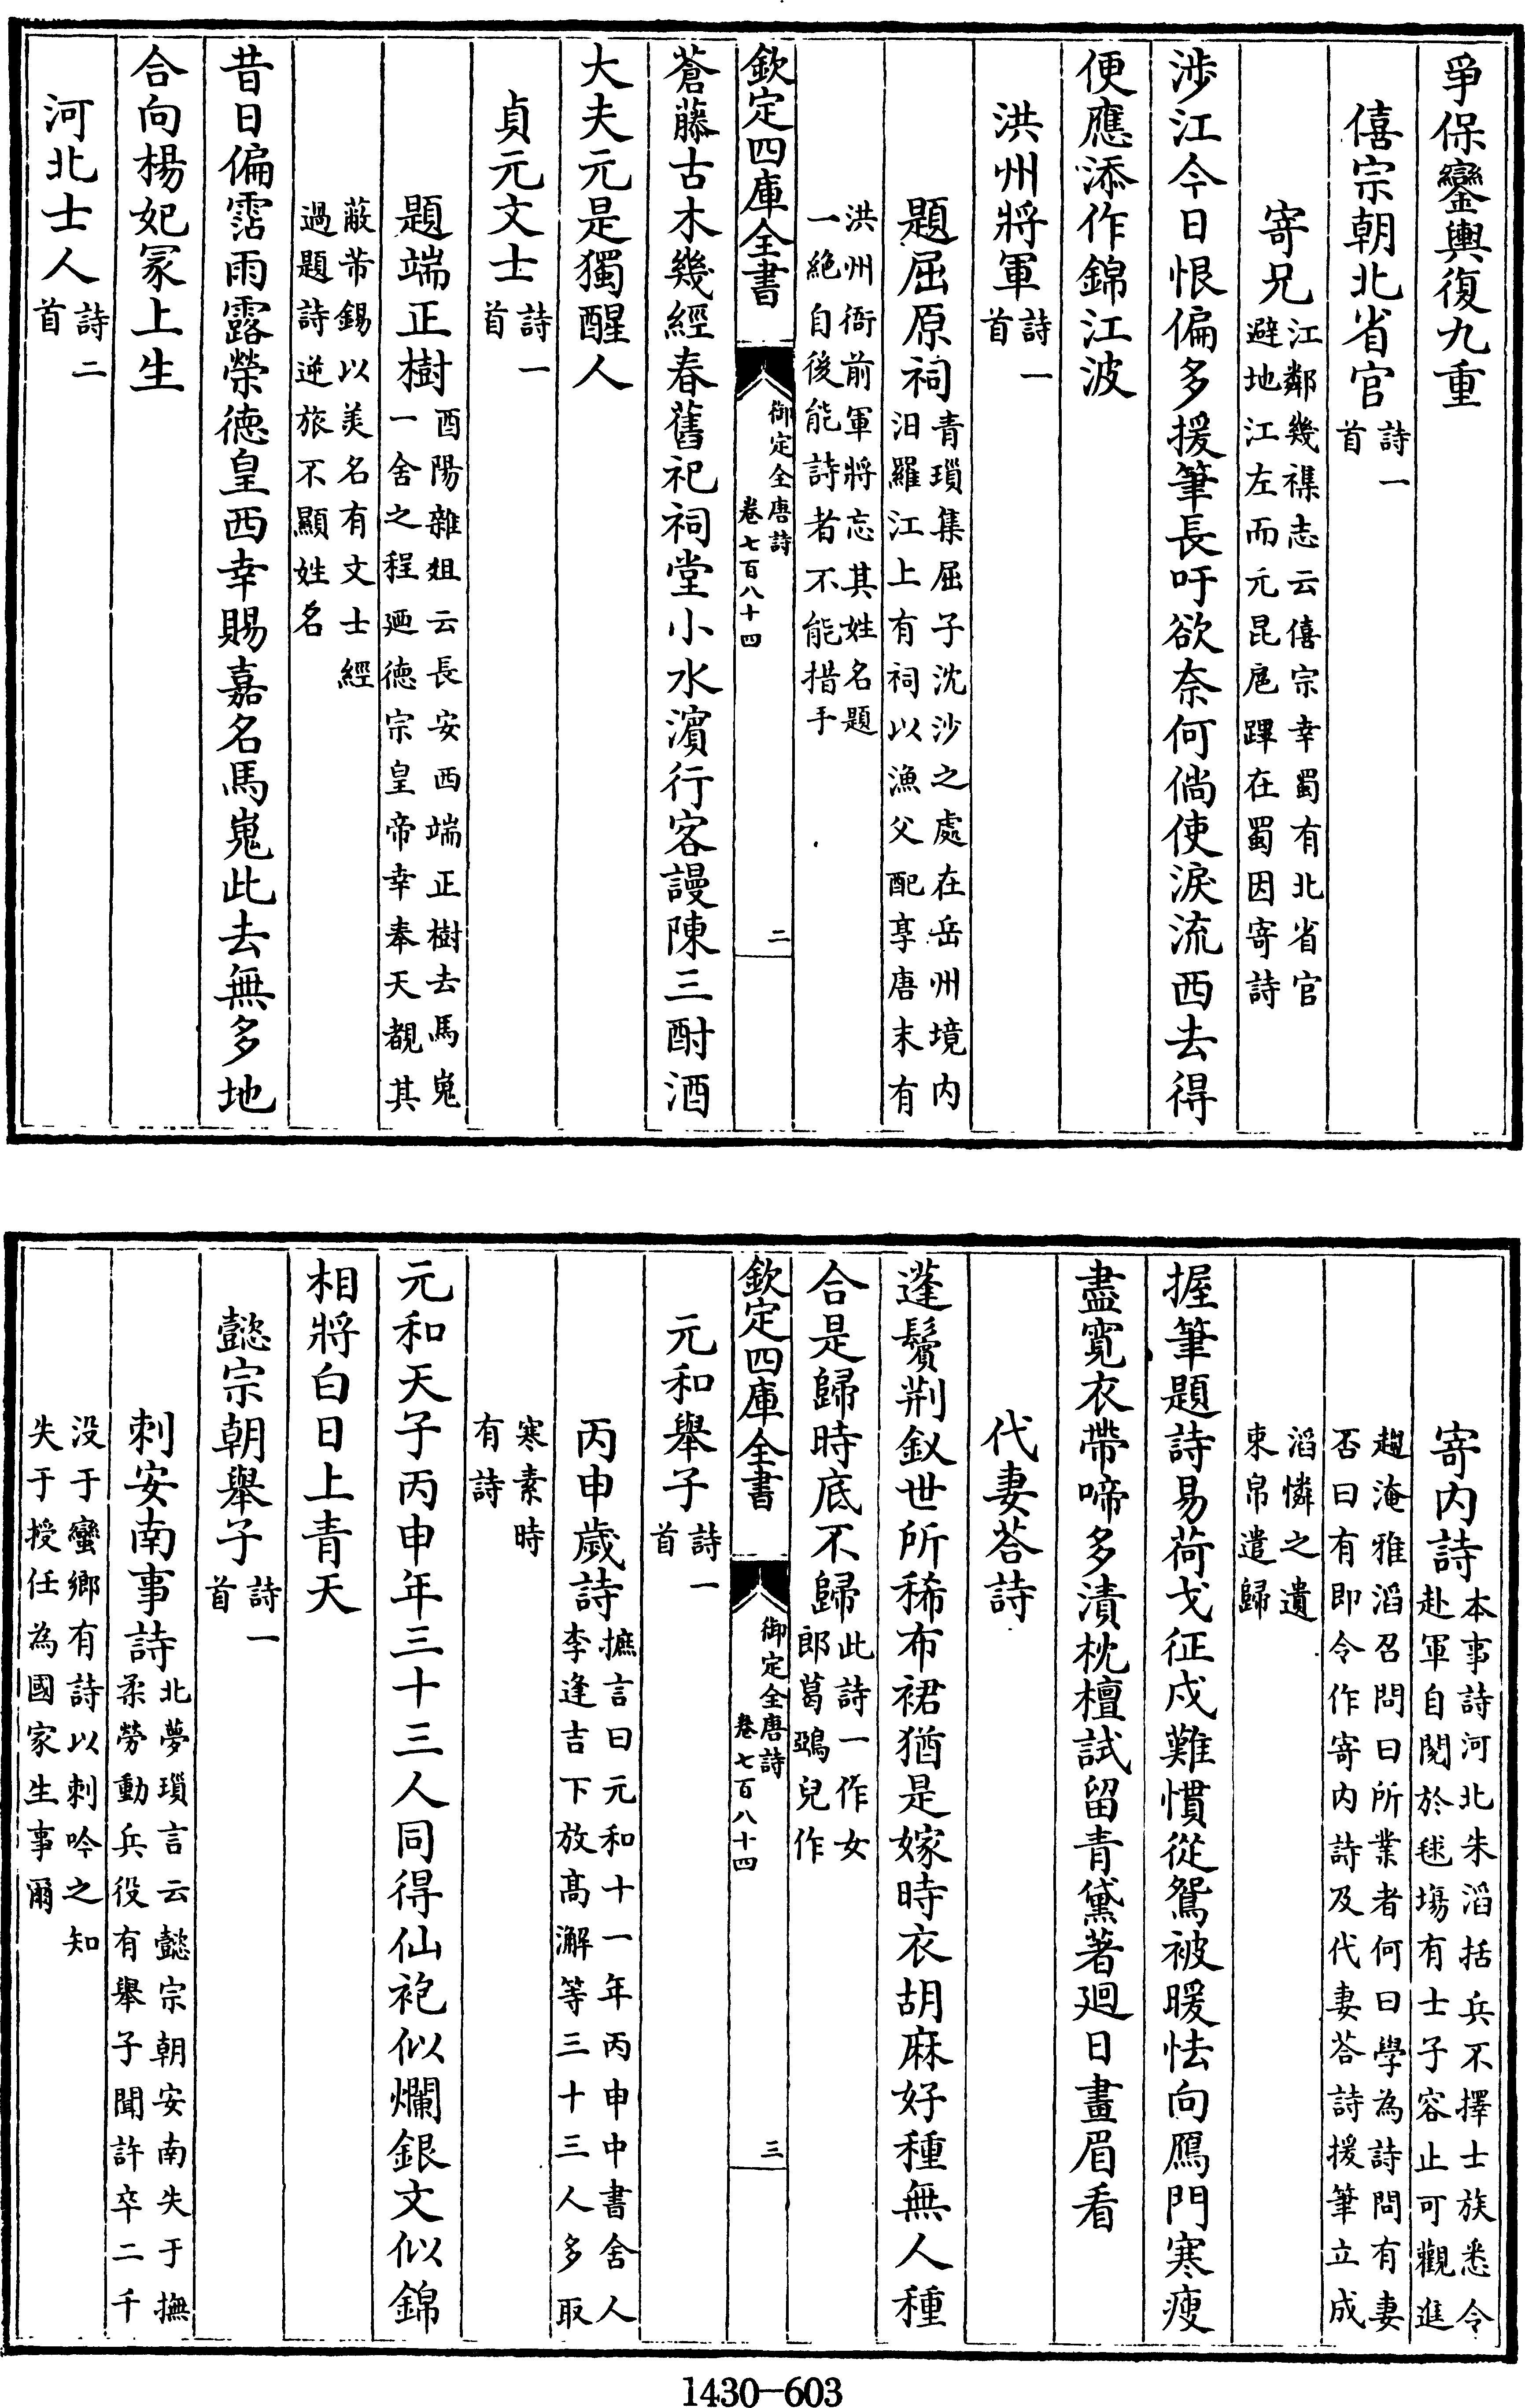 爭保鑾輿復九重
僖宗朝北省官詩一首
寄兄江鄰幾襍志云僖宗幸蜀有北省官避地江左而元昆扈蹕在蜀因寄詩
涉江今日恨偏多援筆長吁欲奈何倘使淚流西去得
便應添作錦江波
洪州將軍詩一首
題屈原祠青瑣集屈子沈沙之處在岳州境内汨羅江上有祠以漁父配享唐末有
洪州衙前軍將忘其姓名題一絶自後能詩者不能措手
欽定四庫全書
御定全唐詩
卷七百八十四
二
蒼藤古木幾經春舊祀祠堂小水濵行客謾陳三酎酒
大夫元是獨醒人
貞元文士詩一首
題端正樹酉陽雜俎云長安西端正樹去馬嵬一舍之程廼德宗皇帝幸奉天覩其
蔽芾錫以美名有文士經過題詩逆旅不顯姓名
昔日偏霑雨露榮德皇西幸賜嘉名馬嵬此去無多地
合向楊妃冢上生
河北士人詩二首
寄内詩本事詩河北朱滔括兵不擇士族悉令赴軍自閱於毬塲有士子容止可觀進
趨淹雅滔召問曰所業者何曰學為詩問有妻否曰有即令作寄内詩及代妻荅詩援筆立成
滔憐之遺束帛遣歸
握筆題詩易荷戈征戍難慣從鴛被暖怯向鴈門寒瘦
盡寛衣帶啼多漬枕檀試留青黛著廻日畫眉看
代妻荅詩
蓬鬢荆釵世所稀布裙猶是嫁時衣胡麻好種無人種
合是歸時底不歸此詩一作女郎葛鵶兒作
欽定四庫全書
御定全唐詩
卷七百八十四
三
元和舉子詩一首
丙申歲詩摭言曰元和十一年丙申中書舍人李逢吉下放髙澥等三十三人多取
寒素時有詩
元和天子丙申年三十三人同得仙袍似爛銀文似錦
相將白日上青天
懿宗朝舉子詩一首
刺安南事詩北夢瑣言云懿宗朝安南失于撫柔勞動兵役有舉子聞許卒二千
没于蠻鄉有詩以刺吟之知失于授任為國家生事爾
1430—603